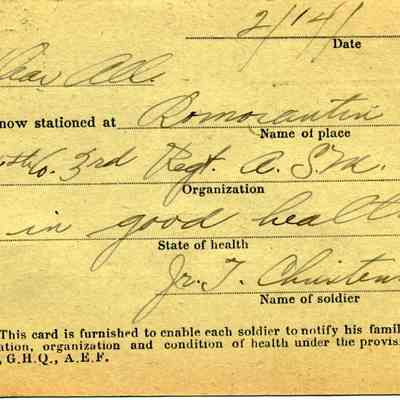 2/14/
Date
Dear All.
now stationed at Romorantin
Name of place
Co. 3rd Regt. A. S. M.
Organization
in good health
State of health
Jr. T. Christen
Name of soldier
This card is furnished to enable each soldier to notify his famil
ation, organization and condition of health under the provis
, G.H.Q., A.E.F.